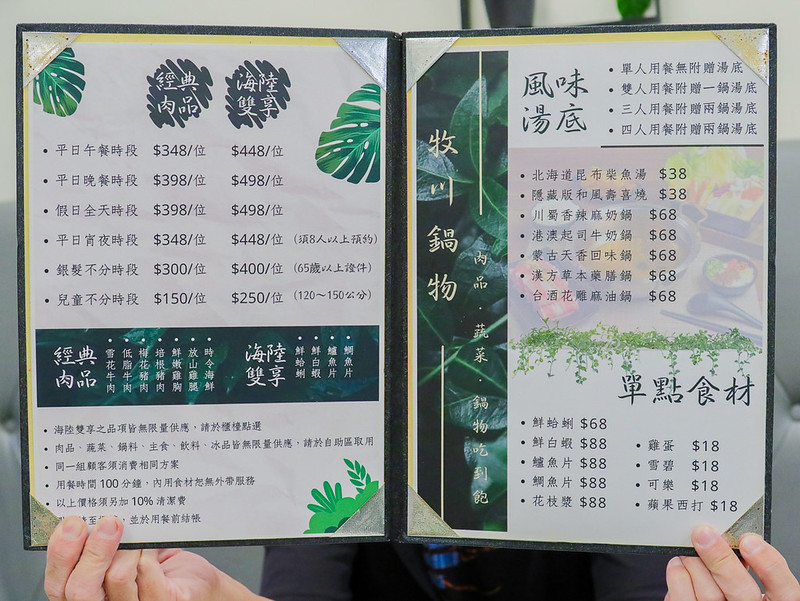 經典肉品 海陸雙享
• 平日午餐時段 $348/位 $448/位
• 平日晚餐時段 $398/位 $498/位
• 假日全天時段 $398/位 $498/位
• 平日宵夜時段 $348/位 $448/位 (須8人以上預約)
• 銀髮不分時段 $300/位 $400/位 (65歲以上證件)
• 兒童不分時段 $150/位 $250/位 (120～150公分)
經典肉品
• 雪花牛肉
• 低脂牛肉
• 梅花豬肉
• 培根豬肉
• 鮮嫩雞胸
• 放山雞腿
• 時令海鮮
海陸雙享
• 鮮蛤蜊
• 鮮白蝦
• 鱸魚片
• 鯛魚片
• 海陸雙享之品項皆無限量供應，請於櫃檯點選
• 肉品、蔬菜、鍋料、主食、飲料、冰品皆無限量供應，請於自助區取用
• 同一組顧客須消費相同方案
• 用餐時間 100 分鐘，內用食材恕無外帶服務
• 以上價格須另加 10% 清潔費
並於用餐前結帳
牧川鍋物
肉品．蔬菜．鍋物吃到飽
風味湯底
• 單人用餐無附贈湯底
• 雙人用餐附贈一鍋湯底
• 三人用餐附贈兩鍋湯底
• 四人用餐附贈兩鍋湯底
• 北海道昆布柴魚湯 $38
• 隱藏版和風壽喜燒 $38
• 川蜀香辣麻奶鍋 $68
• 港澳起司牛奶鍋 $68
• 蒙古天香回味鍋 $68
• 漢方草本藥膳鍋 $68
• 台酒花雕麻油鍋 $68
單點食材
• 鮮蛤蜊 $68
• 鮮白蝦 $88
• 鱸魚片 $88
• 鯛魚片 $88
• 花枝漿 $88
• 雞蛋 $18
• 雪碧 $18
• 可樂 $18
• 蘋果西打 $18